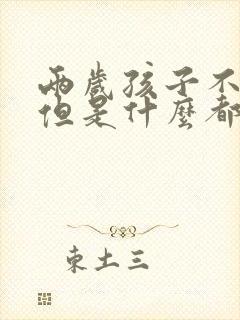 兩歲孩子不
但是什麼都
東土三